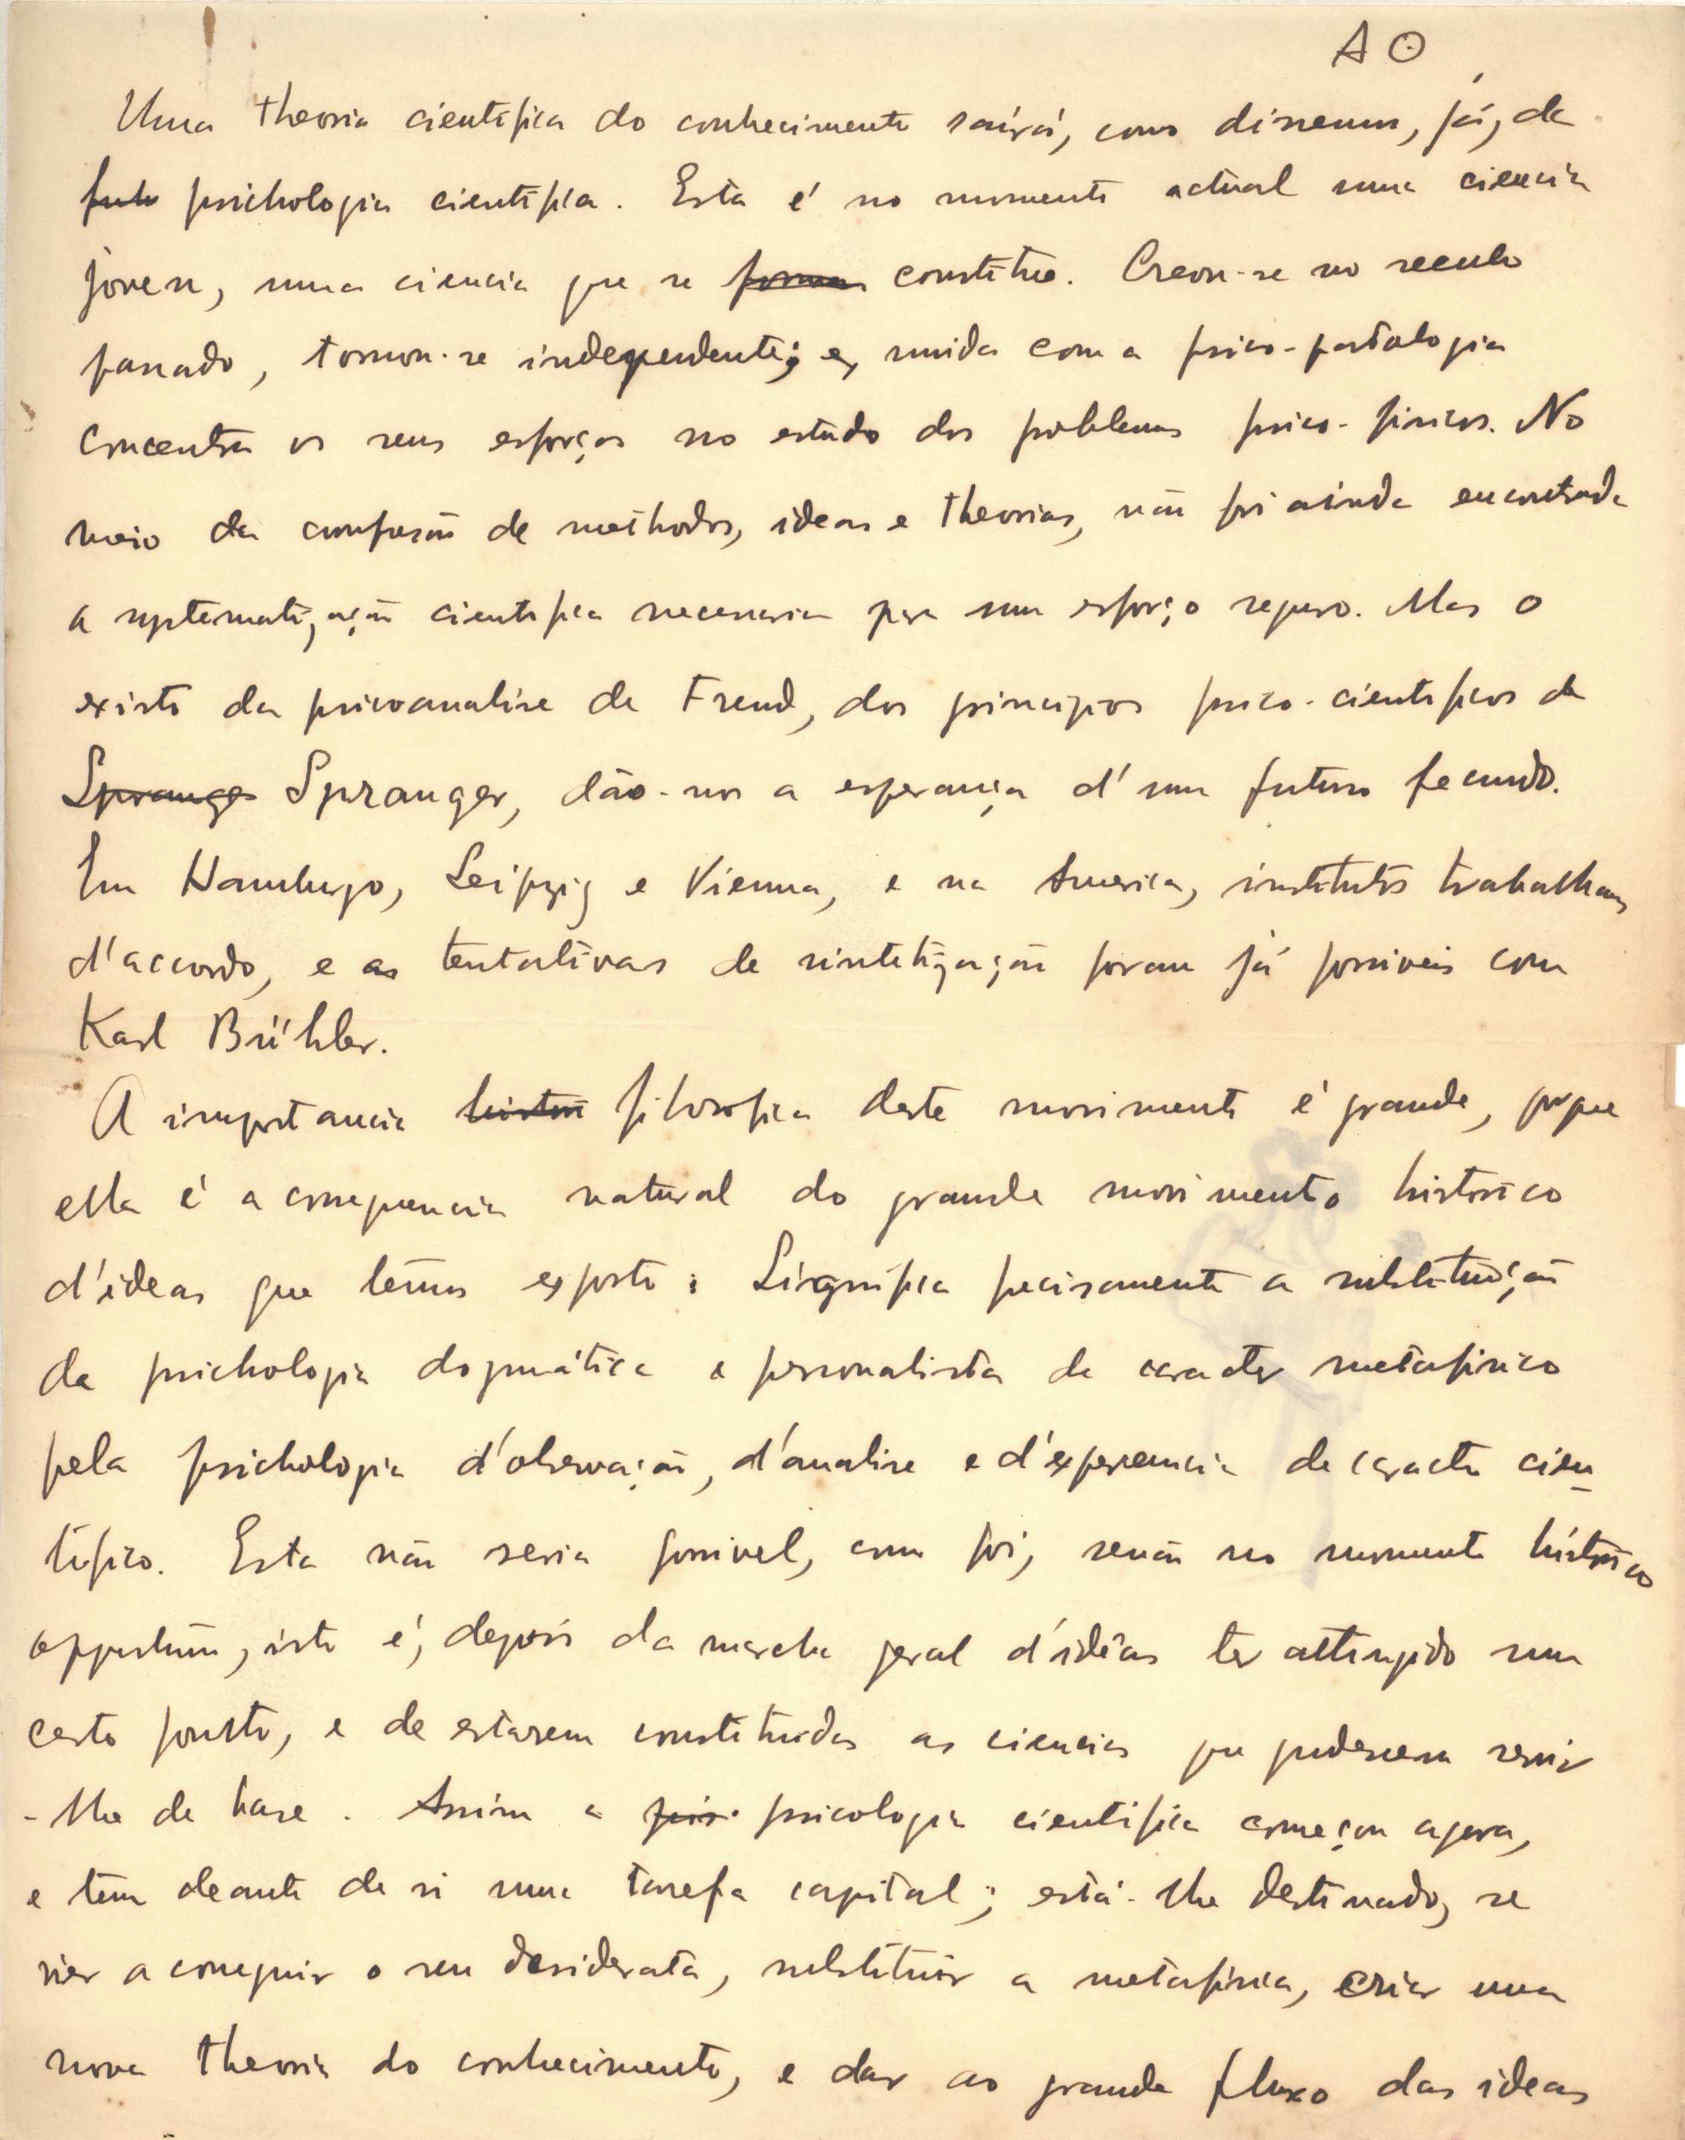 A O
Uma theoria cientifica do conhecimento sairá, como dissemos, já, da
psichologia cientifica. Esta é no momento actual uma ciencia
joven, uma ciencia que se forma constitue. Creou-se no seculo
passado, tornou-se independente; e, unida com a psico-patologia
concentra os seus esforços no estudo dos problemas psico-fisicos. No
meio da confusão de methodos, ideas e theorias, não foi ainda encontrada
a systematização cientifica necessaria para um esforço seguro. Mas o
existo da psicoanalise de Freud, dos principios psico-cientificos de
Spranger Spranger, dão-nos a esperança d'um futuro fecundo.
Em Hamburgo, Leipzig e Vienna, e na America, institutos trabalham
d'accordo, e as tentativas de sintetização foram já possiveis com
Karl Bühler.
A importancia histori filosofica deste movimento é grande, porque
ella é a consequencia natural do grande movimento historico
d'ideas que temos exposto: Significa precisamente a substituição
da psichologia dogmática e personalista de caracter metafisico
pela psichologia d'observação, d'analise e d'experiencia de caracter cien-
tifico. Esta não seria possivel, como foi, senão no momento histórico
opportuno, isto é, depois da marcha geral d'idéas ter attingido um
certo ponto, e de estarem constituidas as ciencias que pudessem servir
-lhe de base. Assim a psi psicologia cientifica começou agora,
e tem deante de si uma tarefa capital; está-lhe destinado, se
vier a conseguir o seu desiderata, substituir a metafisica, criar uma
nova theoria do conhecimento, e dar ao grande fluxo das ideas